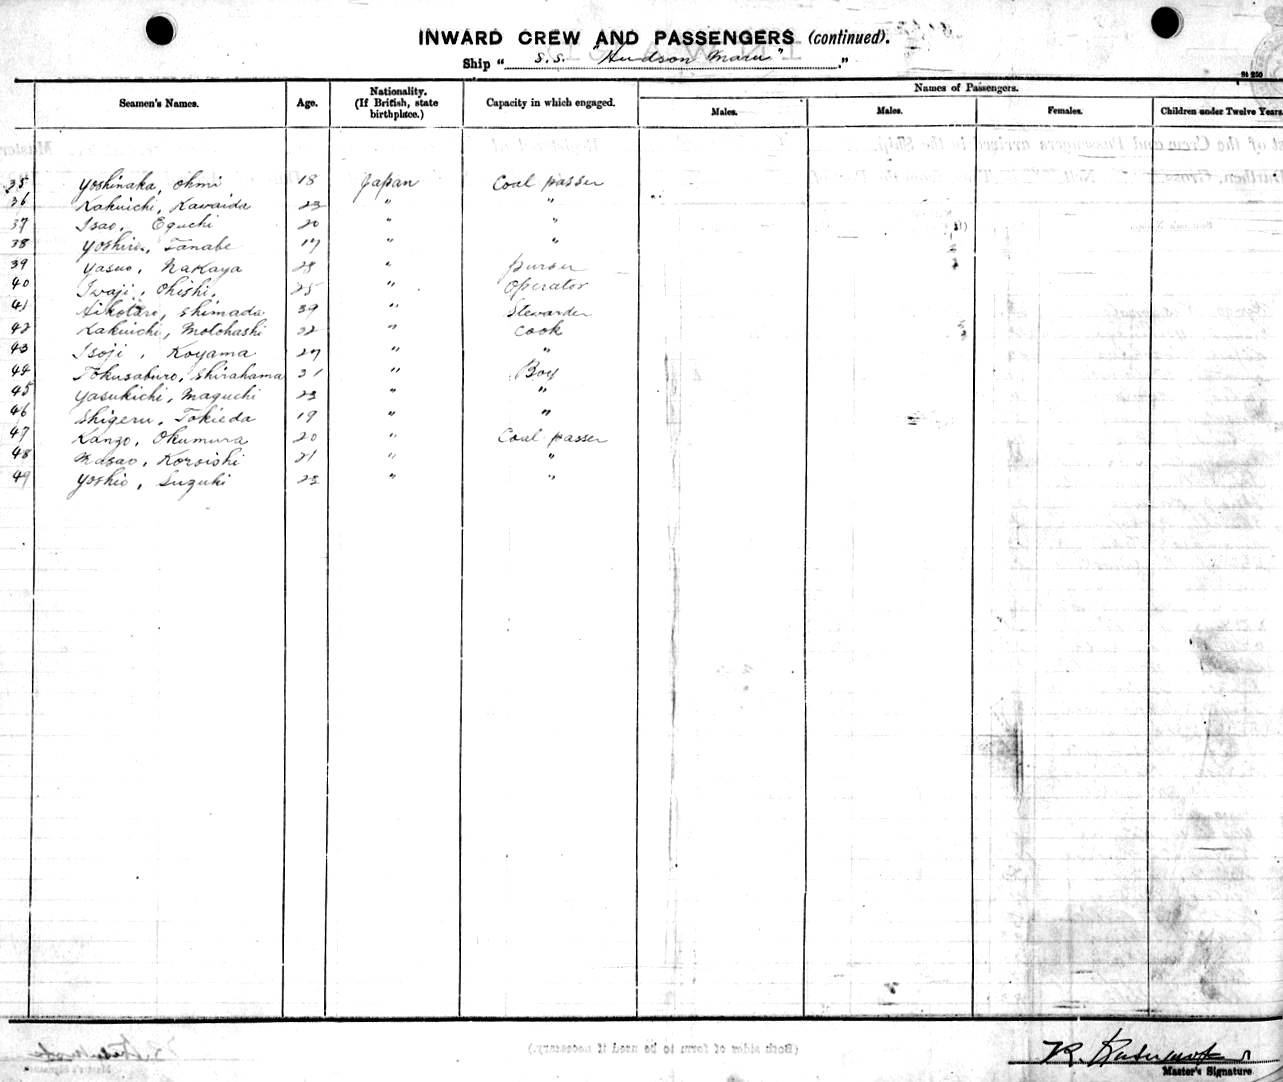 INWARD CREW AND PASSENGERS (continued).
Ship "S.S. "Hudson Maru"."
Seamen's Names. Age. Nationality. (If British, state birthplace.) Capacity in which engaged. Names of Passengers.
Males. Males. Females. Children under Twelve Years.
35 Yoshinaka, Ohmi 18 Japan Coal passer
36 Kakuichi, Kawaida 23 " "
37 Isao, Eguchi 20 " "
38 Yoshiro, Tanabe 17 " "
39 Yasuo, Nakaya 28 " Purser
40 Iwaji, Ohishi, 25 " Operator
41 Aikotaro, Shimada 39 " Stewarder
42 Kakuichi, Motohashi 22 " Cook
43 Isoji, Koyama 27 " "
44 Tokusaburo, Shirahama 31 " Boy
45 Yasukichi, Maguchi 23 " "
46 Shigeru, Tokieda 19 " "
47 Kanzo, Okumura 20 " Coal passer
48 Masao, Koroishi 21 " "
49 Yoshio, Suzuki 23 " "
(Both sides of form to be used if necessary.)
Master's Signature